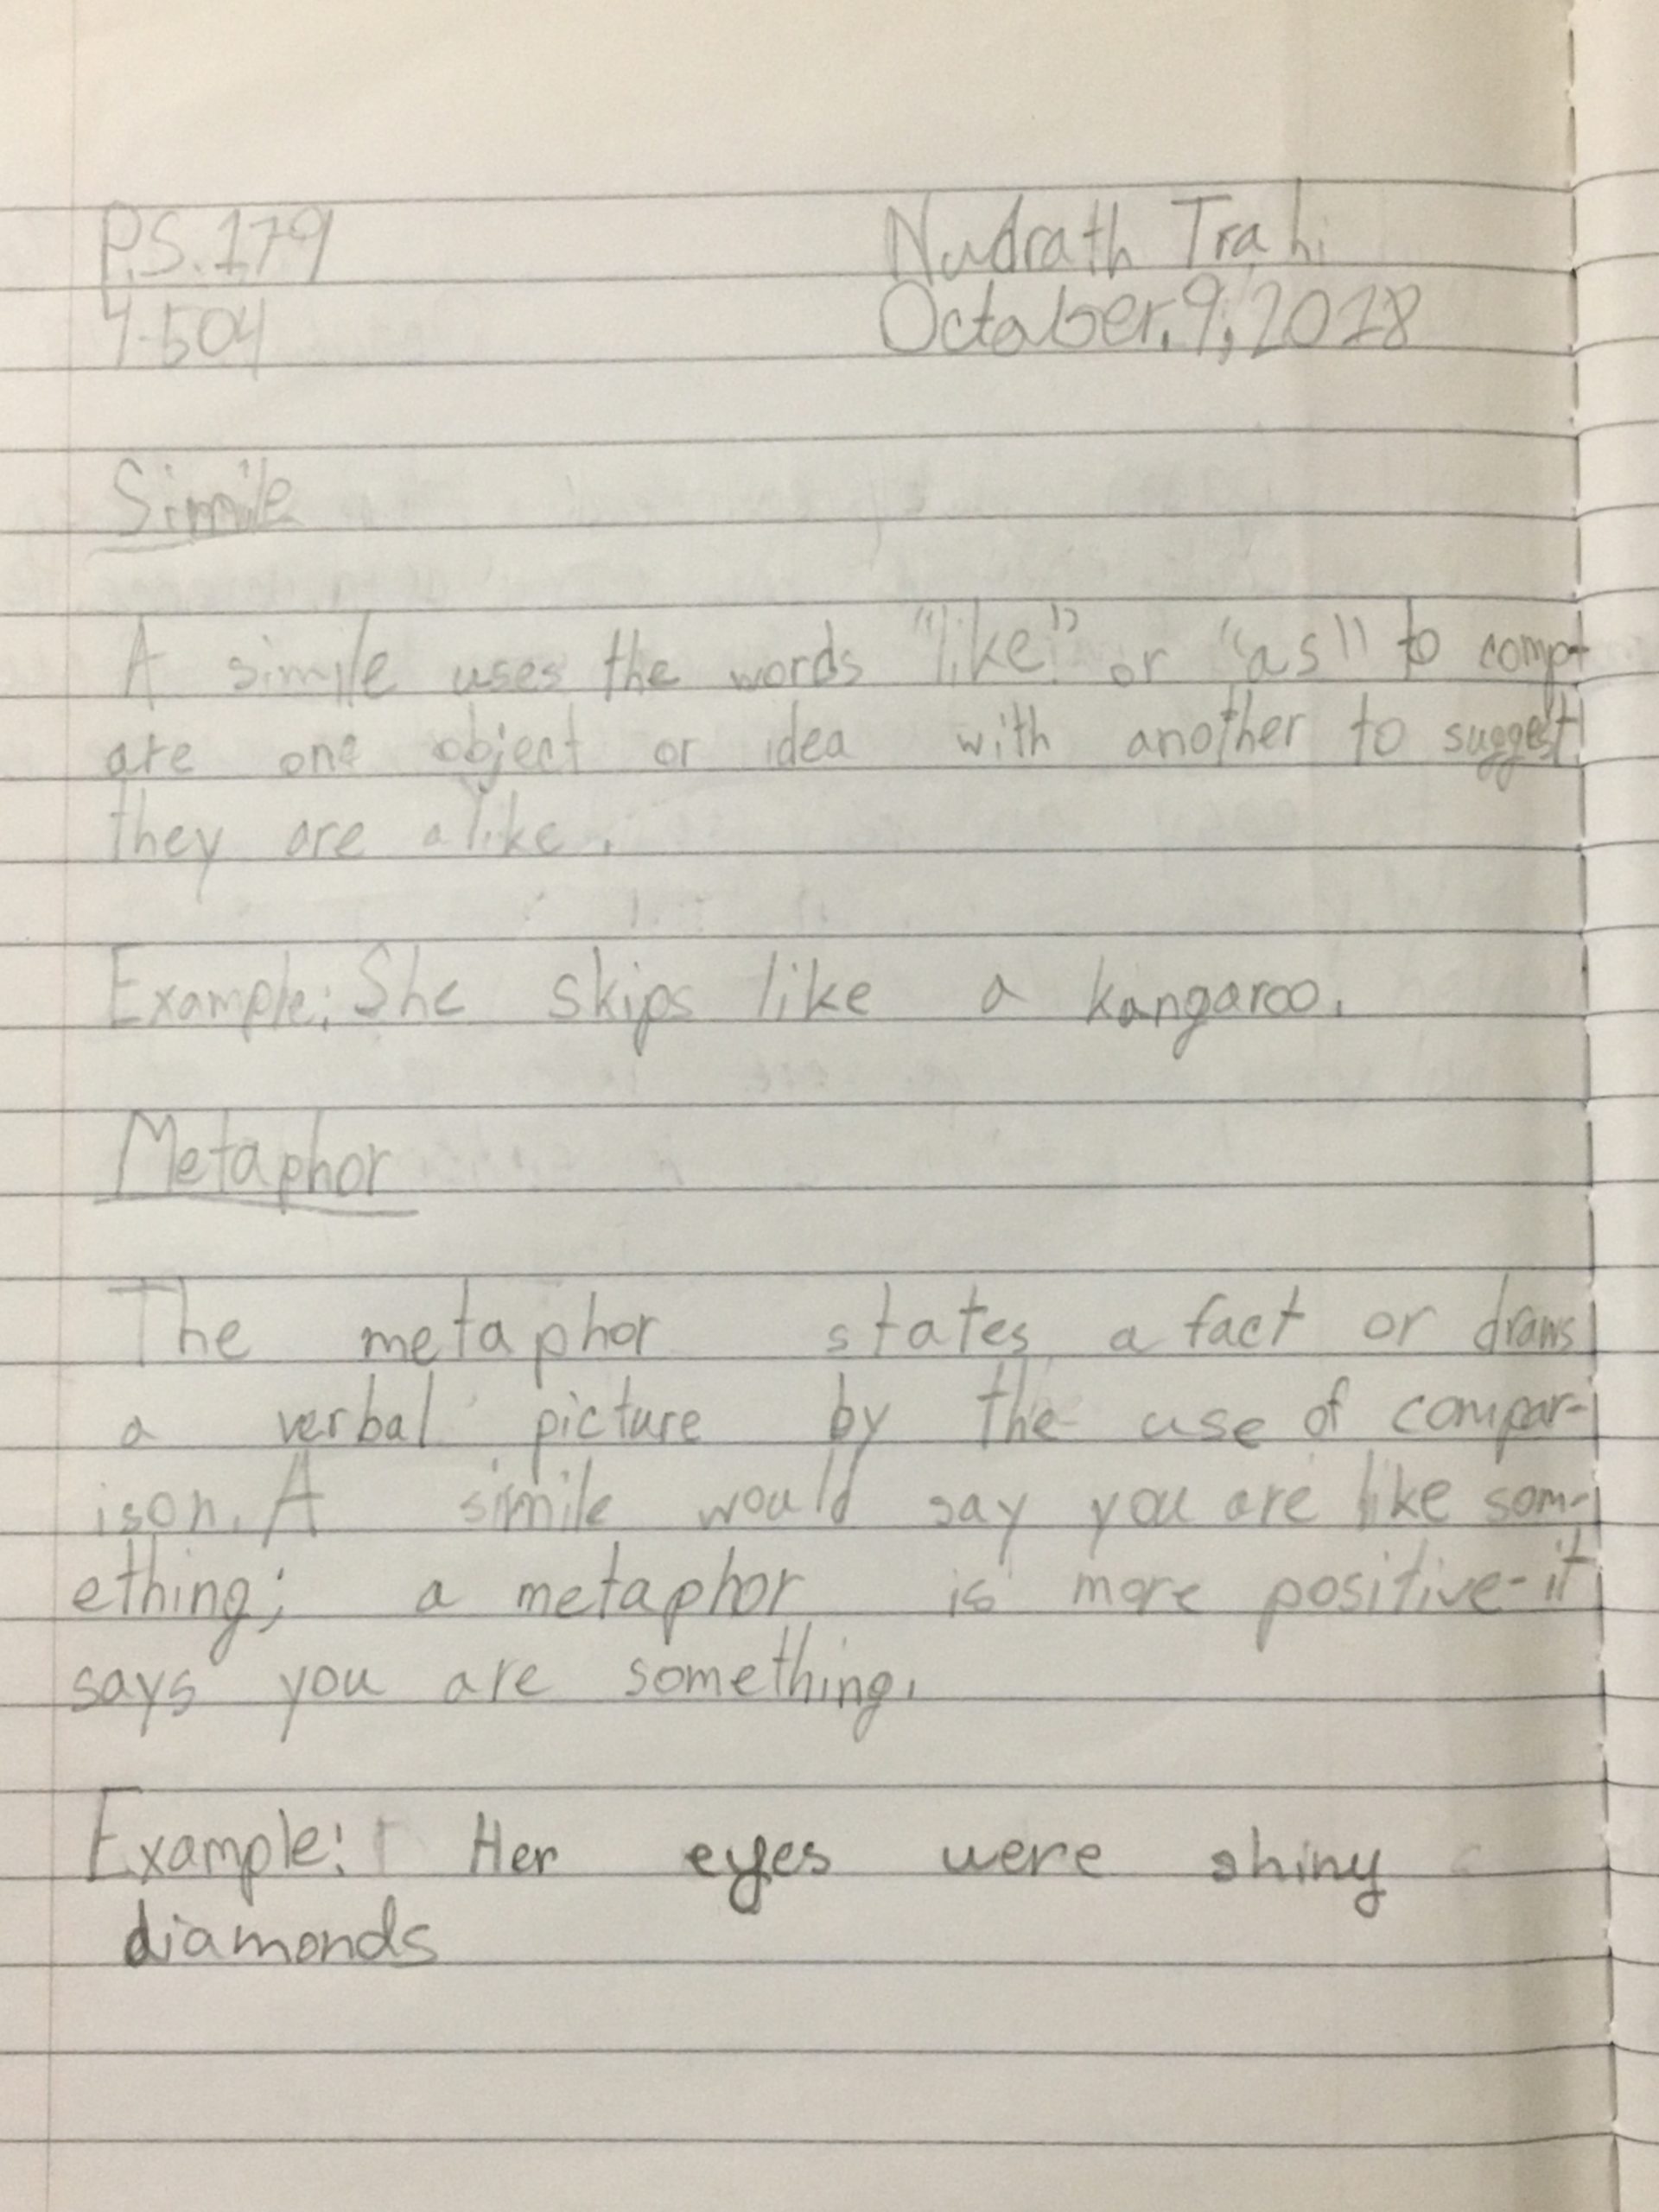 P.S.179 Nudrath Trahi
4-504 October.9,2018
Simile
A simile uses the words "like" or "as" to comp-
are one object or idea with another to suggest
they are alike.
Example: She skips like a kangaroo.
Metaphor
The metaphor states a fact or draws
a verbal picture by the use of compar-
ison. A simile would say you are like som-
ething; a metaphor is more positive-it
says you are something.
Example: Her eyes were shiny
diamonds